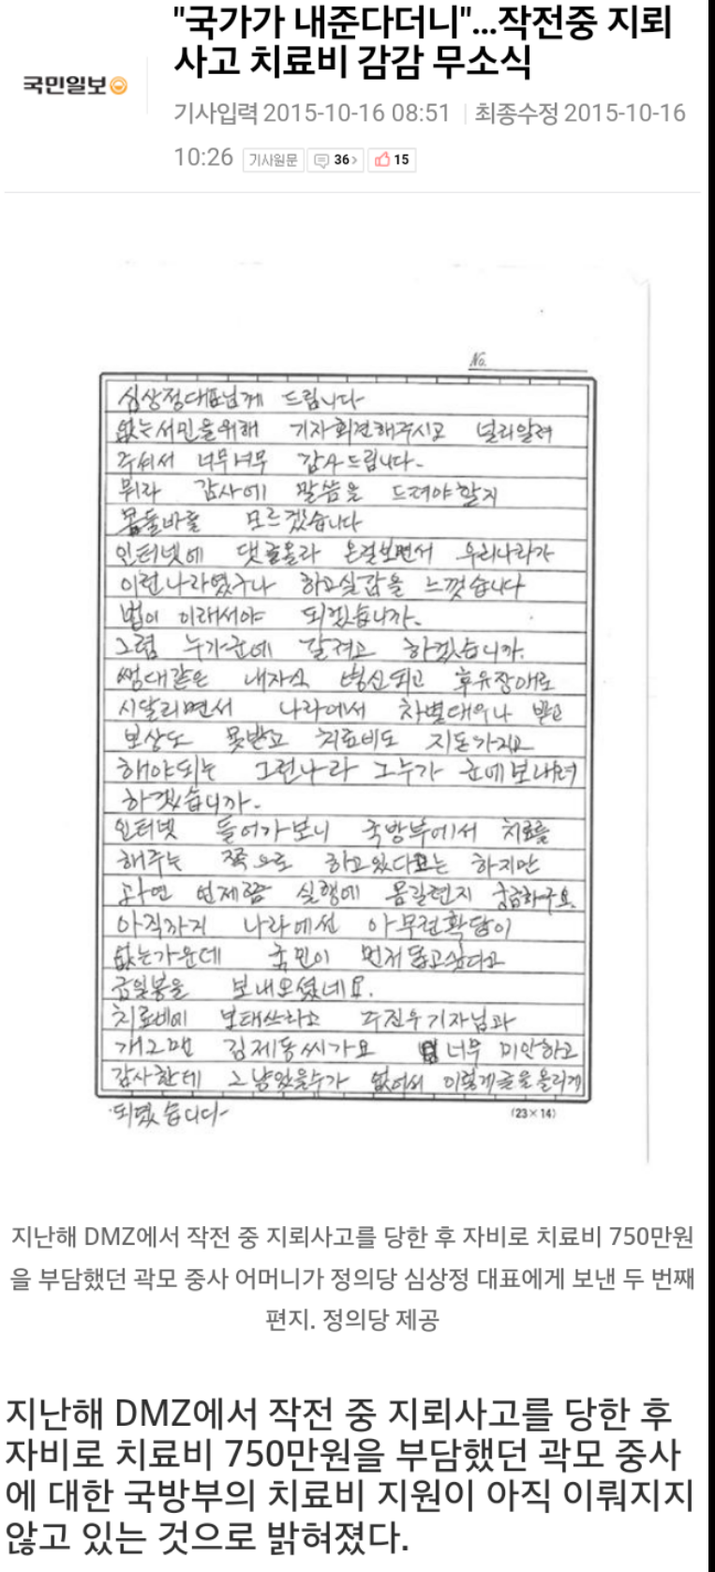 "국가가 내준다더니"...작전중 지뢰
사고 치료비 감감 무소식
국민일보
기사입력 2015-10-16 08:51 최종수정 2015-10-16
10:26 기사원문 36 15
No.
심상정대표님께 드립니다
없는서민을위해 기자회견해주시고 널리알려
주셔서 너무너무 감사드립니다.
뭐라 감사에 말씀을 드려야할지
몸둘바를 모르겠습니다
인터넷에 댓글올라 온걸보면서 우리나라가
이런나라였구나 하고실감을 느꼈습니다
법이 이래서야 되겠습니까.
그럼 누가군에 갈려고 하겠습니까.
쌩대같은 내자식 병신되고 후유장애로
시달리면서 나라에서 차별대우나 받고
보상도 못받고 치료비도 지돈가지고
해야되는 그런나라 그누가 군에보내려
하겠습니까.
인터넷 들어가보니 국방부에서 치료를
해주는 쪽으로 하고있다고는 하지만
과연 언제쯤 실행에 옮길런지 궁금하구요.
아직까지 나라에선 아무런확답이
없는가운데 국민이 먼저돕고싶다고
금일봉을 보내오셨네요.
치료비에 보태쓰라고 기자님과
개그맨 김제동씨가요 너무 미안하고
감사한데 그냥있을수가 없어서 이렇게글을올리게
되였습니다
(23×14)
지난해 DMZ에서 작전 중 지뢰사고를 당한 후 자비로 치료비 750만원
을 부담했던 곽모 중사 어머니가 정의당 심상정 대표에게 보낸 두 번째
편지. 정의당 제공
지난해 DMZ에서 작전 중 지뢰사고를 당한 후
자비로 치료비 750만원을 부담했던 곽모 중사
에 대한 국방부의 치료비 지원이 아직 이뤄지지
않고 있는 것으로 밝혀졌다.